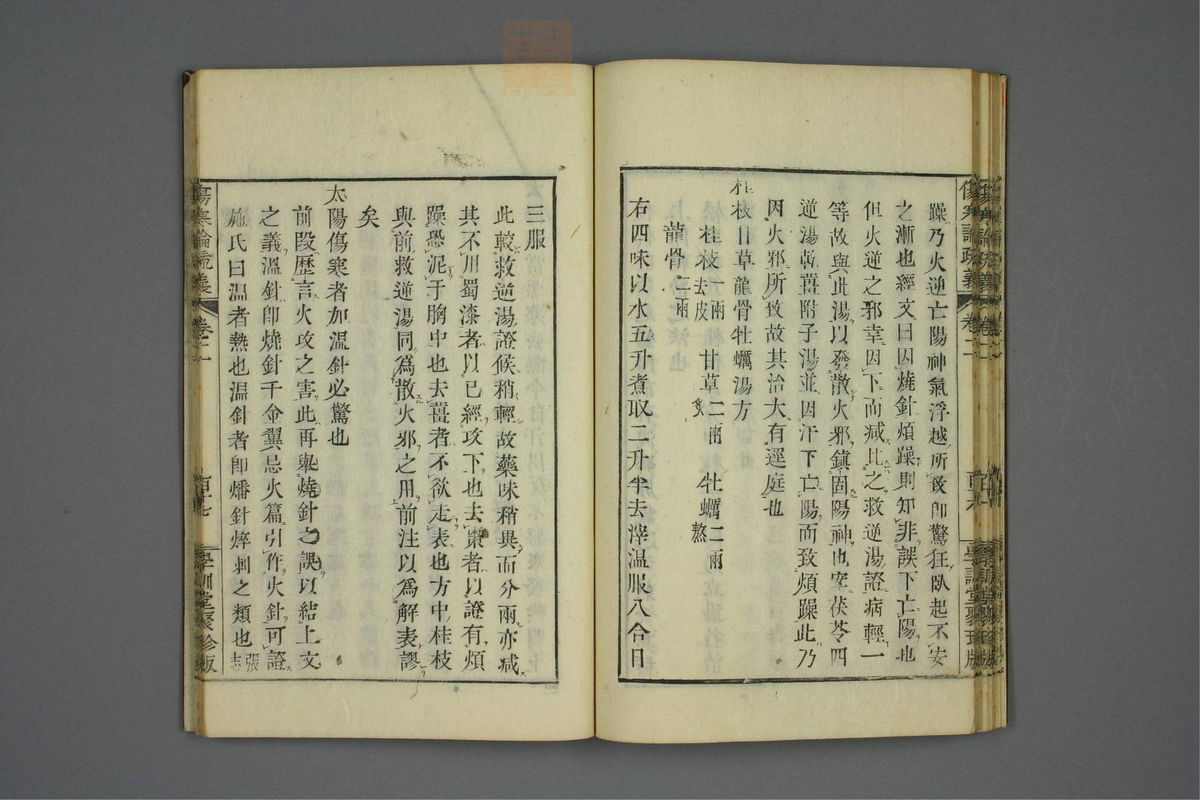 躁乃火逆亡陽神氣浮越所致卽驚狂臥起不安
之漸也經文曰因燒針煩躁則知非誤下亡陽也
但火逆之邪幸因下而減比之救逆湯證病輕一
等故與此湯以發散火邪鎮固陽神也案茯苓四
逆湯乾薑附子湯並因汗下亡陽而致煩躁此乃
因火邪所致故其治大有逕庭也
桂枝甘草龍骨牡蠣湯方
桂枝一兩去皮 甘草二兩炙 牡蠣二兩熬
龍骨二兩
右四味以水五升煮取二升半去滓温服八合日
三服
此較救逆湯證候稍輕故藥味稍異而分兩亦減
其不用蜀漆者以已經攻下也去棗者以證有煩
躁恐泥于胸中也去薑者不欲走表也方中桂枝
與前救逆湯同爲散火邪之用前注以爲解表謬
矣
太陽傷寒者加溫針必驚也
前段歷言火攻之害此再舉燒針之誤以結上文
之義溫針卽燒針千金翼忌火篇引作火針可證
施氏曰温者熱也温針者卽燔針焠刺之類也張志
傷寒論疏義 卷二 百七 學訓堂聚珍版
傷寒論疏義 卷二 百六 學訓堂聚珍版